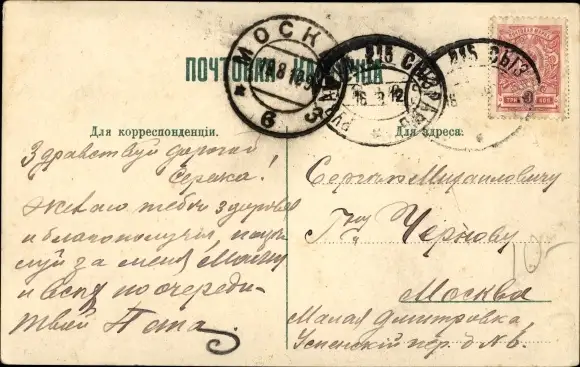 ПОЧТОВАЯ КАРТОЧКА
МОСКВА
215 СЫЗРАНЬ
16 12
215 СЫЗ
ТРИ КОП.
Для корреспонденціи.
Для адреса.
Здравствуй дорогой
Сережа!
Желаю тебе здоровья
и благополучія, поцѣ
луй за меня Маму
и всѣх по очереди
твой Папа.
Сергѣю Михаиловичу
Гну Чернову
Москва
Малая Дмитровка
Успенскій пер. д. № 8.